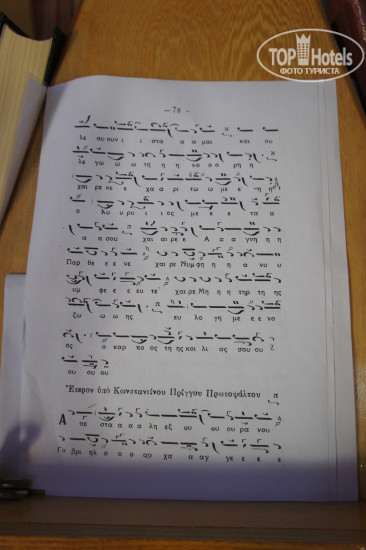 TOP Hotels
ФОТО ТУРИСТА
— 78 —
λε ου ου νι ι στα α α μαι και ου
λε γω ω ω τη η η κο ο ο ρη η
χαι ρε κε χα α ρι τω ω με κ νη η
ο Κυ υ ρι ι ι ος με κ ε τα α
α α σου χαι αι ρε ε Α α α γνη η η
Παρ θε ε ε νε χαι ρε Νυμ φη η η α νυ υ
υμ φε ε ε ευ τε χαι ρε Μη η η τηρ τη ης
ζω ω ω ης ευ λο γη με ε ε νο
ος ο καρ πο ος της κοι λι ας σου ου
ου ου ου
Ἕτερον ὑπὸ Κωνσταντίνου Πρίγγου Πρωτοψάλτου
Α πε στα α α α λη εξ ου ου ου ου ρα νου
Γα βρι ηλ ο ο α αρ χα α αγ γε ε ε ε